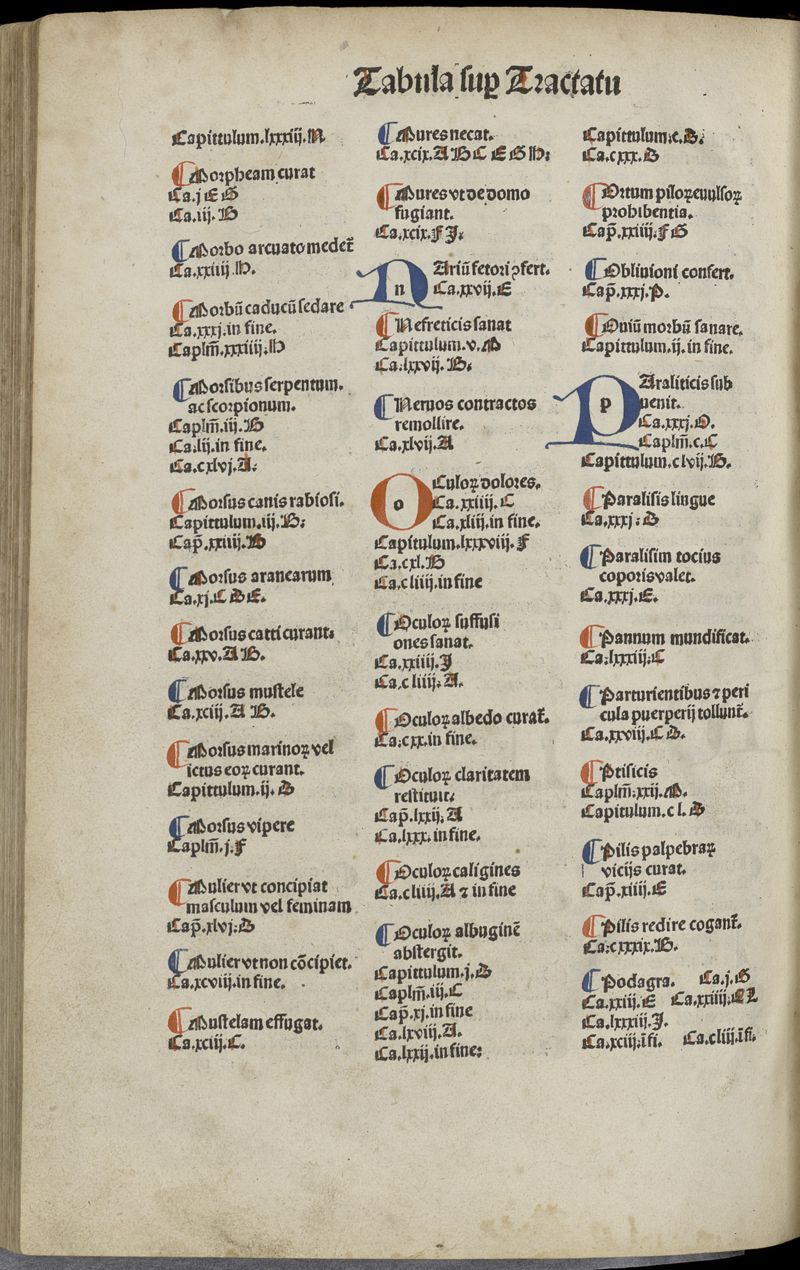 Tabula sup̲ Tractatu
Capittulum.lxxxiij.N
¶ Morpheam curat
Ca.j E G
Ca.iij.B
¶ Morbo arcuato medet᷑
Ca.xxiiij.H.
¶ Morbū caducū sedare
Ca.xxxj.in fine.
Caplm̄.xxxiiij.H
¶ Morsibus serpentum.
ac scorpionum.
Caplm̄.iij.B
Ca.lij.in fine.
Ca.cxlvj.A.
¶ Morsus canis rabiosi.
Capittulum.iij.B.
Cap̄.xxiiij.B
¶ Morsus aranearum
Ca.xj.C D E.
¶ Morsus catti curant.
Ca.xxv.A B.
¶ Morsus mustele
Ca.xciij.A B.
¶ Morsus marinoꝝ vel
ictus eoꝝ curant.
Capittulum.ij.D
¶ Morsus vipere
Caplm̄.j.F
¶ Mulier vt concipiat
masculum vel feminam
Cap̄.xlvj.D
¶ Mulier vt non cōcipiet.
Ca.xcviij.in fine.
¶ Mustelam effugat.
Ca.xciij.C.
¶ Mures necat.
Ca.xcix.A B C E G H.
¶ Mures vt de domo
fugiant.
Ca.xcix.F J.
n Ariū fetori ꝯfert.
Ca.xxvij.E
¶ Nefreticis sanat
Capittulum.v.M
Ca.lxxvij.B.
¶ Neruos contractos
remollire.
Ca.xlvij.A
o Culoꝝ dolores.
Ca.xxiiij.C
Ca.xliij.in fine.
Capitulum.lxxxviij.F
Ca.cxl.B
Ca.cliiij.in fine
¶ Oculoꝝ suffusi
ones sanat.
Ca.xxiiij.J
Ca.cliiij.A.
¶ Oculoꝝ albedo curat᷑.
Ca.cxx.in fine.
¶ Oculoꝝ claritatem
restituit.
Cap̄.lxxij.A
Ca.lxxx.in fine.
¶ Oculoꝝ caligines
Ca.cliiij.A ⁊ in fine
¶ Oculoꝝ albuginē
abstergit.
Capittulum.j.D
Caplm̄.iij.C
Cap̄.xj.in fine
Ca.lxviij.A.
Ca.lxxij.in fine.
Capittulum.c.D.
Ca.cxxx.D
¶ Ortum piloꝝ euulsoꝝ
prohibentia.
Cap̄.xxiiij.F G
¶ Obliuioni confert.
Cap̄.xxxj.P.
¶ Ouiū morbū sanare.
Capittulum.ij.in fine.
p Araliticis sub
uenit.
Ca.xxxj.O.
Caplm̄.c.C
Capittulum.clvij.B.
¶ Paralisis lingue
Ca.xxxj.D
¶ Paralisim tocius
coporis valet.
Ca.xxxj.E.
¶ Pannum mundificat.
Ca.lxxxiij.C
¶ Parturientibus ⁊ peri
cula puerperij tollunt᷑.
Ca.xxviij.C D.
¶ Ptisicis
Caplm̄.xxij.M.
Capitulum.cl.D
¶ Pilis palpebraꝝ
vicijs curat.
Cap̄.xiiij.E
¶ Pilis redire cogant᷑.
Ca.cxxxix.B.
¶ Podagra. Ca.j.G
Ca.xxiij.E Ca.xxiiij.E L
Ca.lxxxiij.J.
Ca.xciij.ī fi. Ca.cliij.ī fi.